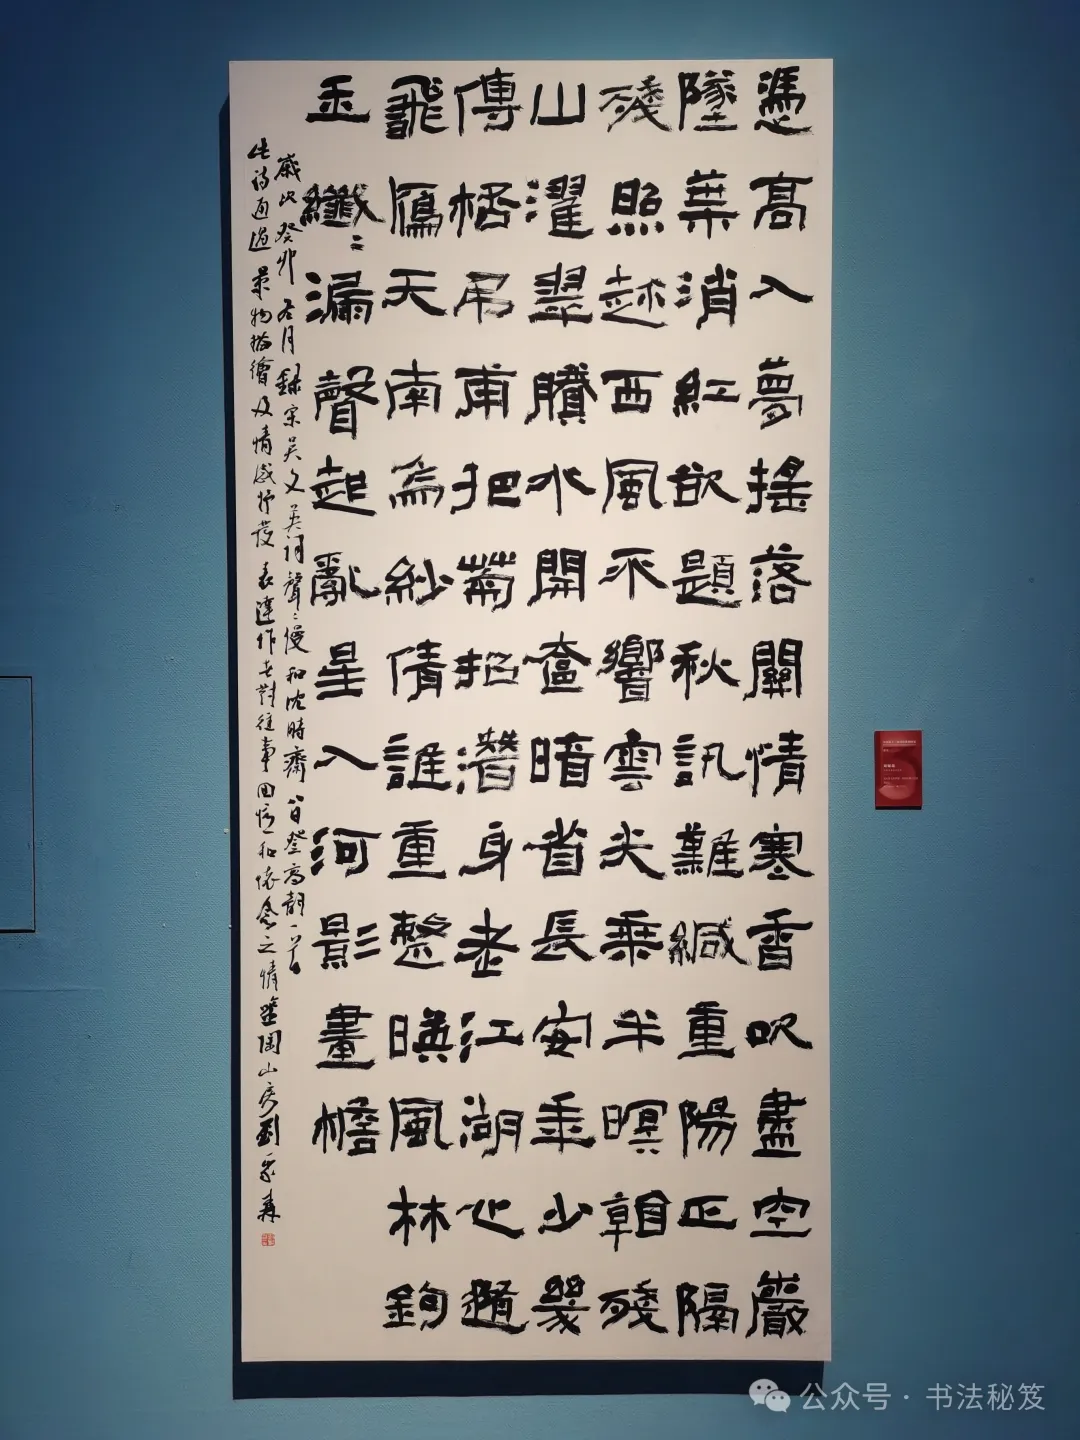 憑高入夢搖落關情寒香吹盡空巖
墜葉消紅欲題秋訊難緘重陽正隔
殘照趂西風不響雲尖乘半暝看殘
山濯翠賸水開奩暗省長安年少幾
傳桮吊甫把菊招潛身老江湖心隨
飛鴈天南烏紗倩誰重整暎風林鉤
玉纖〻漏聲起亂星入河影畫檐
歲次癸卯冬月錄宋吳文英詞聲〻慢和沈時齋八日登高韻一首
此詩通過景物描繪及情感抒發表達作者對往事回憶和懷念之情陶山房劉森
公众号 · 书法秘笈